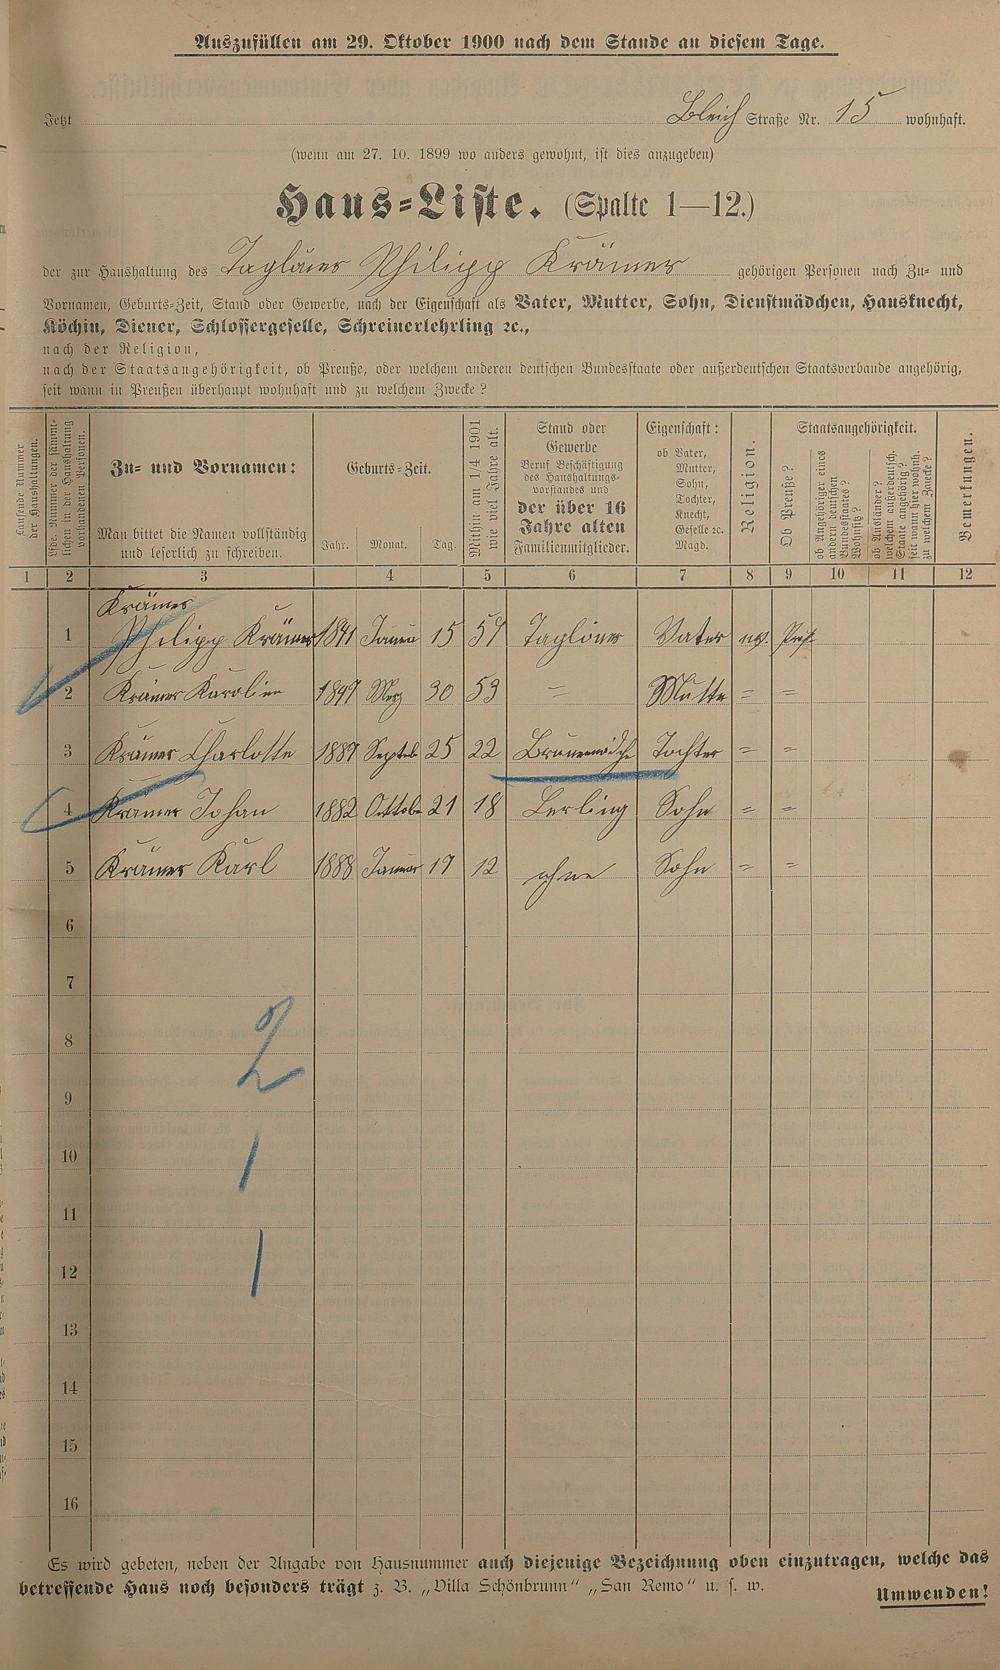 Auszufüllen am 29. Oktober 1900 nach dem Stande an diesem Tage.
Jetzt Bleich Straße Nr. 15 wohnhaft.
(wenn am 27. 10. 1899 wo anders gewohnt, ist dies anzugeben)
Haus-Liste. (Spalte 1—12.)
der zur Haushaltung des Taglöner Philipp Krämer gehörigen Personen nach Zu- und
Vornamen, Geburts-Zeit, Stand oder Gewerbe, nach der Eigenschaft als Vater, Mutter, Sohn, Dienstmädchen, Hausknecht,
Köchin, Diener, Schlossergeselle, Schreinerlehrling ꝛc.,
nach der Religion,
nach der Staatsangehörigkeit, ob Preuße, oder welchem anderen deutschen Bundesstaate oder außerdeutschen Staatsverbande angehörig,
seit wann in Preußen überhaupt wohnhaft und zu welchem Zwecke?
Laufende Nummer der Haushaltungen.
Lfde. Nummer der sämmtlichen in der Haushaltung vorhandenen Personen.
Zu- und Vornamen:
Man bittet die Namen vollständig
und leserlich zu schreiben.
Geburts-Zeit.
Jahr. Monat. Tag.
Mithin am 1/4 1901 wie viel Jahre alt.
Stand oder
Gewerbe
Beruf Beschäftigung
des Haushaltungs-
vorstandes und
der über 16
Jahre alten
Familienmitglieder.
Eigenschaft:
ob Vater,
Mutter,
Sohn,
Tochter,
Knecht,
Geselle ꝛc.
Magd.
Religion.
Staatsangehörigkeit.
Ob Preuße?
ob Angehöriger eines andern deutschen Bundesstaates? Wohnsitz?
ob Ausländer? welchem außerdeutsch. Staate angehörig? seit wann hier wohnh. zu welchem Zwecke?
Bemerkungen.
1 2 3 4 5 6 7 8 9 10 11 12
Krämer
1 Philipp Krämer 1841 Januar 15 59 Taglöner Vater ev.
2 Krämer Karolien 1847 Merz 30 53 = Mutter = =
3 Krämer Charlotte Septeb 25 22 Tochter = =
4 Krämer Johan 1882 Octtober 21 18 Lerling Sohn = =
5 Krämer Karl 1888 Januar 19 12 ohne Sohn = =
6
7
8
2
9
10
1
11
12
1
13
14
15
16
Es wird gebeten, neben der Angabe von Hausnummer auch diejenige Bezeichnung oben einzutragen, welche das
betreffende Haus noch besonders trägt z. B. „Villa Schönbrunn" „San Remo" u. s. w.
Umwenden!